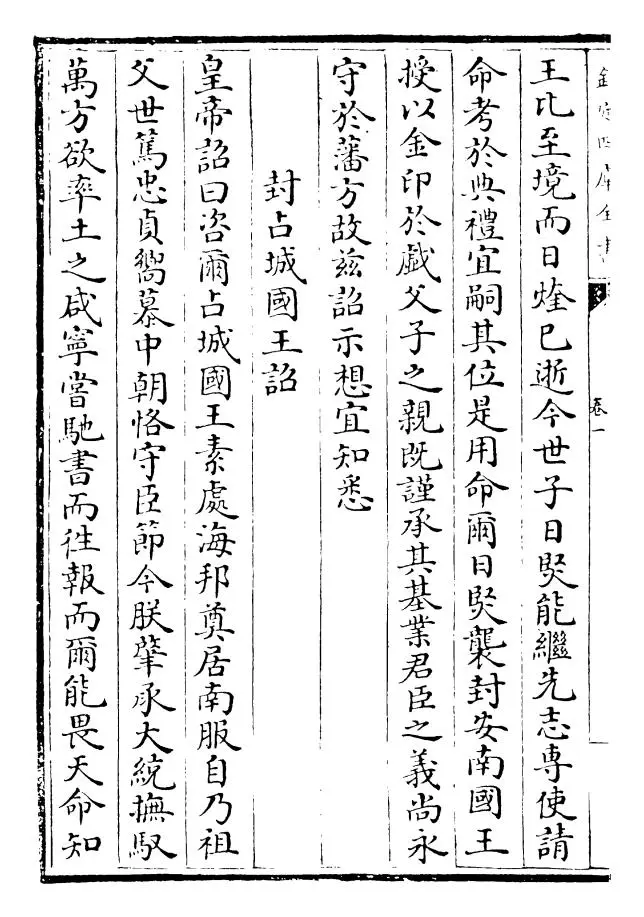 欽定四庫全書
卷一
王比至境而日煃已逝今世子日熞能繼先志專使請
命考於典禮宜嗣其位是用命爾日熞襲封安南國王
授以金印於戲父子之親既謹承其基業君臣之義尚永
守於藩方故兹詔示想宜知悉
封占城國王詔
皇帝詔曰咨爾占城國王素處海邦奠居南服自乃祖
父世篤忠貞嚮慕中朝恪守臣節今朕肇承大統撫馭
萬方欲率土之咸寧嘗馳書而往報而爾能畏天命知